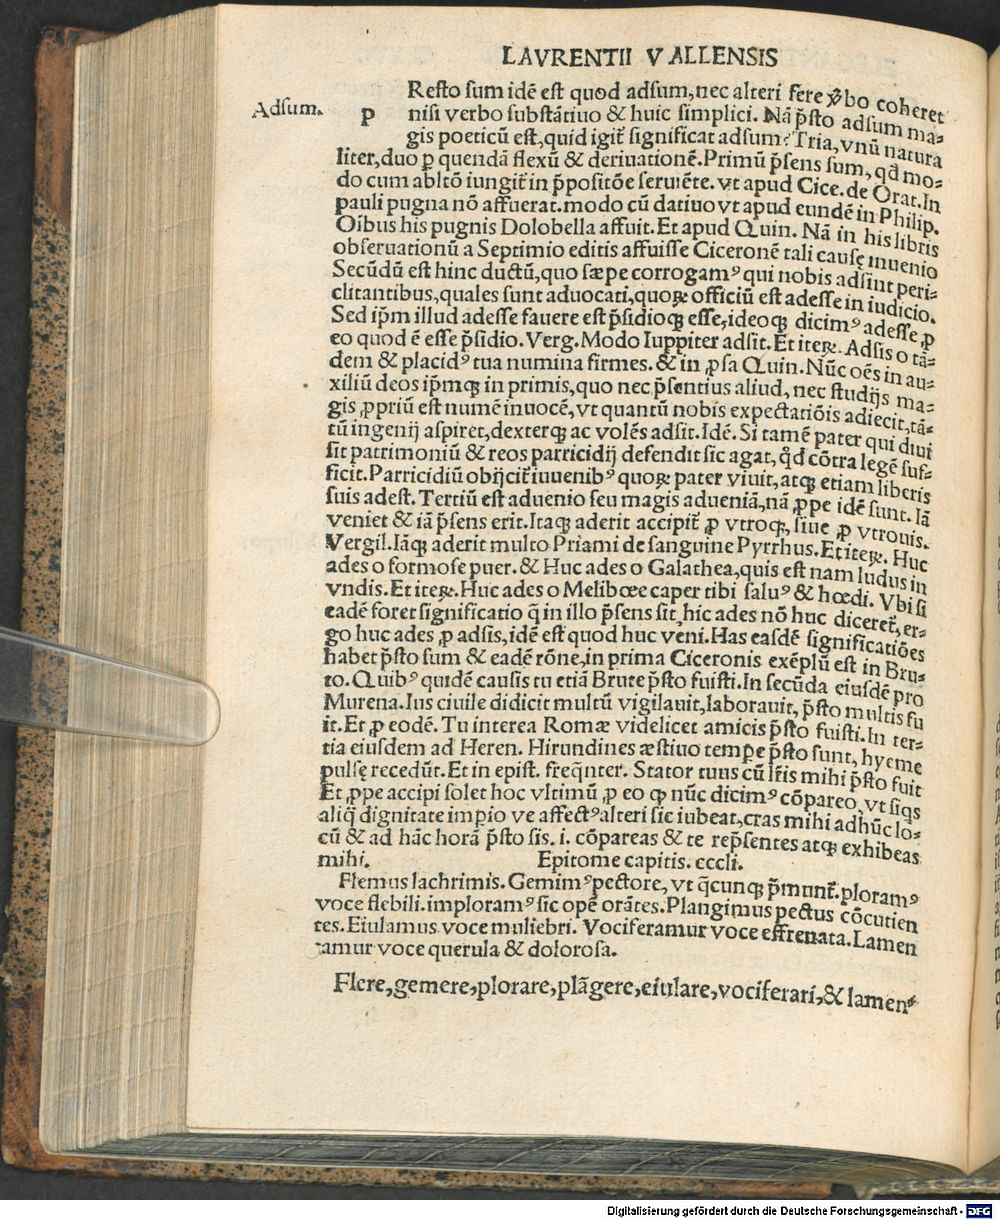 LAVRENTII VALLENSIS
Adsum.
P Resto sum idē est quod adsum, nec alteri fere ꝟbo coheret
nisi verbo substātiuo & huic simplici. Nā p̄sto adsum ma⸗
gis poeticū est, quid igit̃ significat adsum? Tria, vnū natura
liter, duo ꝑ quendā flexū & deriuationē. Primū p̄sens sum, qđ mo⸗
do cum abltō iungit̃ in p̄positōe seruiēte. vt apud Cice. de Orat. In
pauli pugna nō affuerat. modo cū datiuo vt apud eundē in Philip.
Oībus his pugnis Dolobella affuit. Et apud Quin. Nā in his libris
obseruationū a Septimio editis affuisse Ciceronē tali causę inuenio
Secūdū est hinc ductū, quo sæpe corrogamꝰ qui nobis adsint peri⸗
clitantibus, quales sunt aduocati, quoꝝ officiū est adesse in iudicio.
Sed ip̄m illud adesse fauere est p̄sidioqꝫ esse, ideoqꝫ dicimꝰ adesse ꝓ
eo quod ē esse p̄sidio. Verg. Modo Iuppiter adsit. Et iteꝝ. Adsis o tā⸗
dem & placidꝰ tua numina firmes. & in ꝓsa Quin. Nūc oēs in au⸗
xiliū deos ip̄mqꝫ in primis, quo nec p̄sentius aliud, nec studijs ma⸗
gis ꝓpriū est numē inuocē, vt quantū nobis expectatiōis adiecit, tā⸗
tū ingenij aspiret, dexterqꝫ ac volēs adsit. Idē. Si tamē pater qui diui
sit patrimoniū & reos parricidij defendit sic agat, ꝙđ cōtra legē suf⸗
ficit. Parricidiū obijcit̃ iuuenibꝰ quoꝝ pater viuit, atqꝫ etiam liberis
suis adest. Tertiū est aduenio seu magis adueniā, nā ꝓpe idē sunt. Iā
veniet & iā p̄sens erit. Itaqꝫ aderit accipit̃ ꝓ vtroqꝫ, siue ꝓ vtrouis.
Vergil. Iāqꝫ aderit multo Priami de sanguine Pyrrhus. Et iteꝝ. Huc
ades o formose puer. & Huc ades o Galathea, quis est nam ludus in
vndis. Et iteꝝ. Huc ades o Melibœe caper tibi saluꝰ & hœdi. Vbi si
eadē foret significatio q̄ in illo p̄sens sit, hic ades nō huc diceret̃, er⸗
go huc ades ꝓ adsis, idē est quod huc veni. Has easdē significatiōes
habet p̄sto sum & eadē rōne, in prima Ciceronis exēplū est in Bru⸗
to. Quibꝰ quidē causis tu etiā Brute p̄sto fuisti. In secūda eiusdē pro
Murena. Ius ciuile didicit multū vigilauit, laborauit, p̄sto multis fu
it. Et ꝓ eodē. Tu interea Romæ videlicet amicis p̄sto fuisti. In ter⸗
tia eiusdem ad Heren. Hirundines æstiuo tempe p̄sto sunt, hyeme
pulsę recedūt. Et in epist. freq̄nter. Stator tuus cū lr̄is mihi p̄sto fuit
Et ꝓpe accipi solet hoc vltimū ꝓ eo qꝫ nūc dicimꝰ cōpareo, vt siqs
aliq̄ dignitate impio ve affectꝰ alteri sic iubeat, cras mihi adhūc lo⸗
cū & ad hāc horā p̄sto sis. i. cōpareas & te rep̄sentes atqꝫ exhibeas
mihi. Epitome capitis. cccli.
Flemus lachrimis. Gemimꝰ pectore, vt q̄cunqꝫ p̄munt̃. ploramꝰ
voce flebili. imploramꝰ sic opē orātes. Plangimus pectus cōcutien
tes. Eiulamus voce muliebri. Vociferamur voce effrenata. Lamen
tamur voce querula & dolorosa.
Flere, gemere, plorare, plāgere, eiulare, vociferari, & lamen⸗
Digitalisierung gefördert durch die Deutsche Forschungsgemeinschaft - DFG